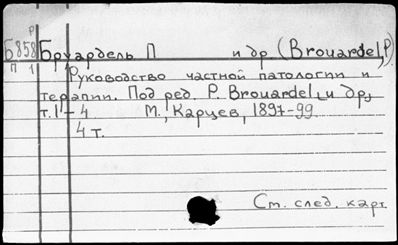 Р
Б858 Бруардель П и др (Brouardel, P)
П 1
Руководство частной патологии и
терапии. Под ред. P. Brouardel и др.
т. 1-4 М., Карцев, 1897-99.
4 т.
См. след. карт.